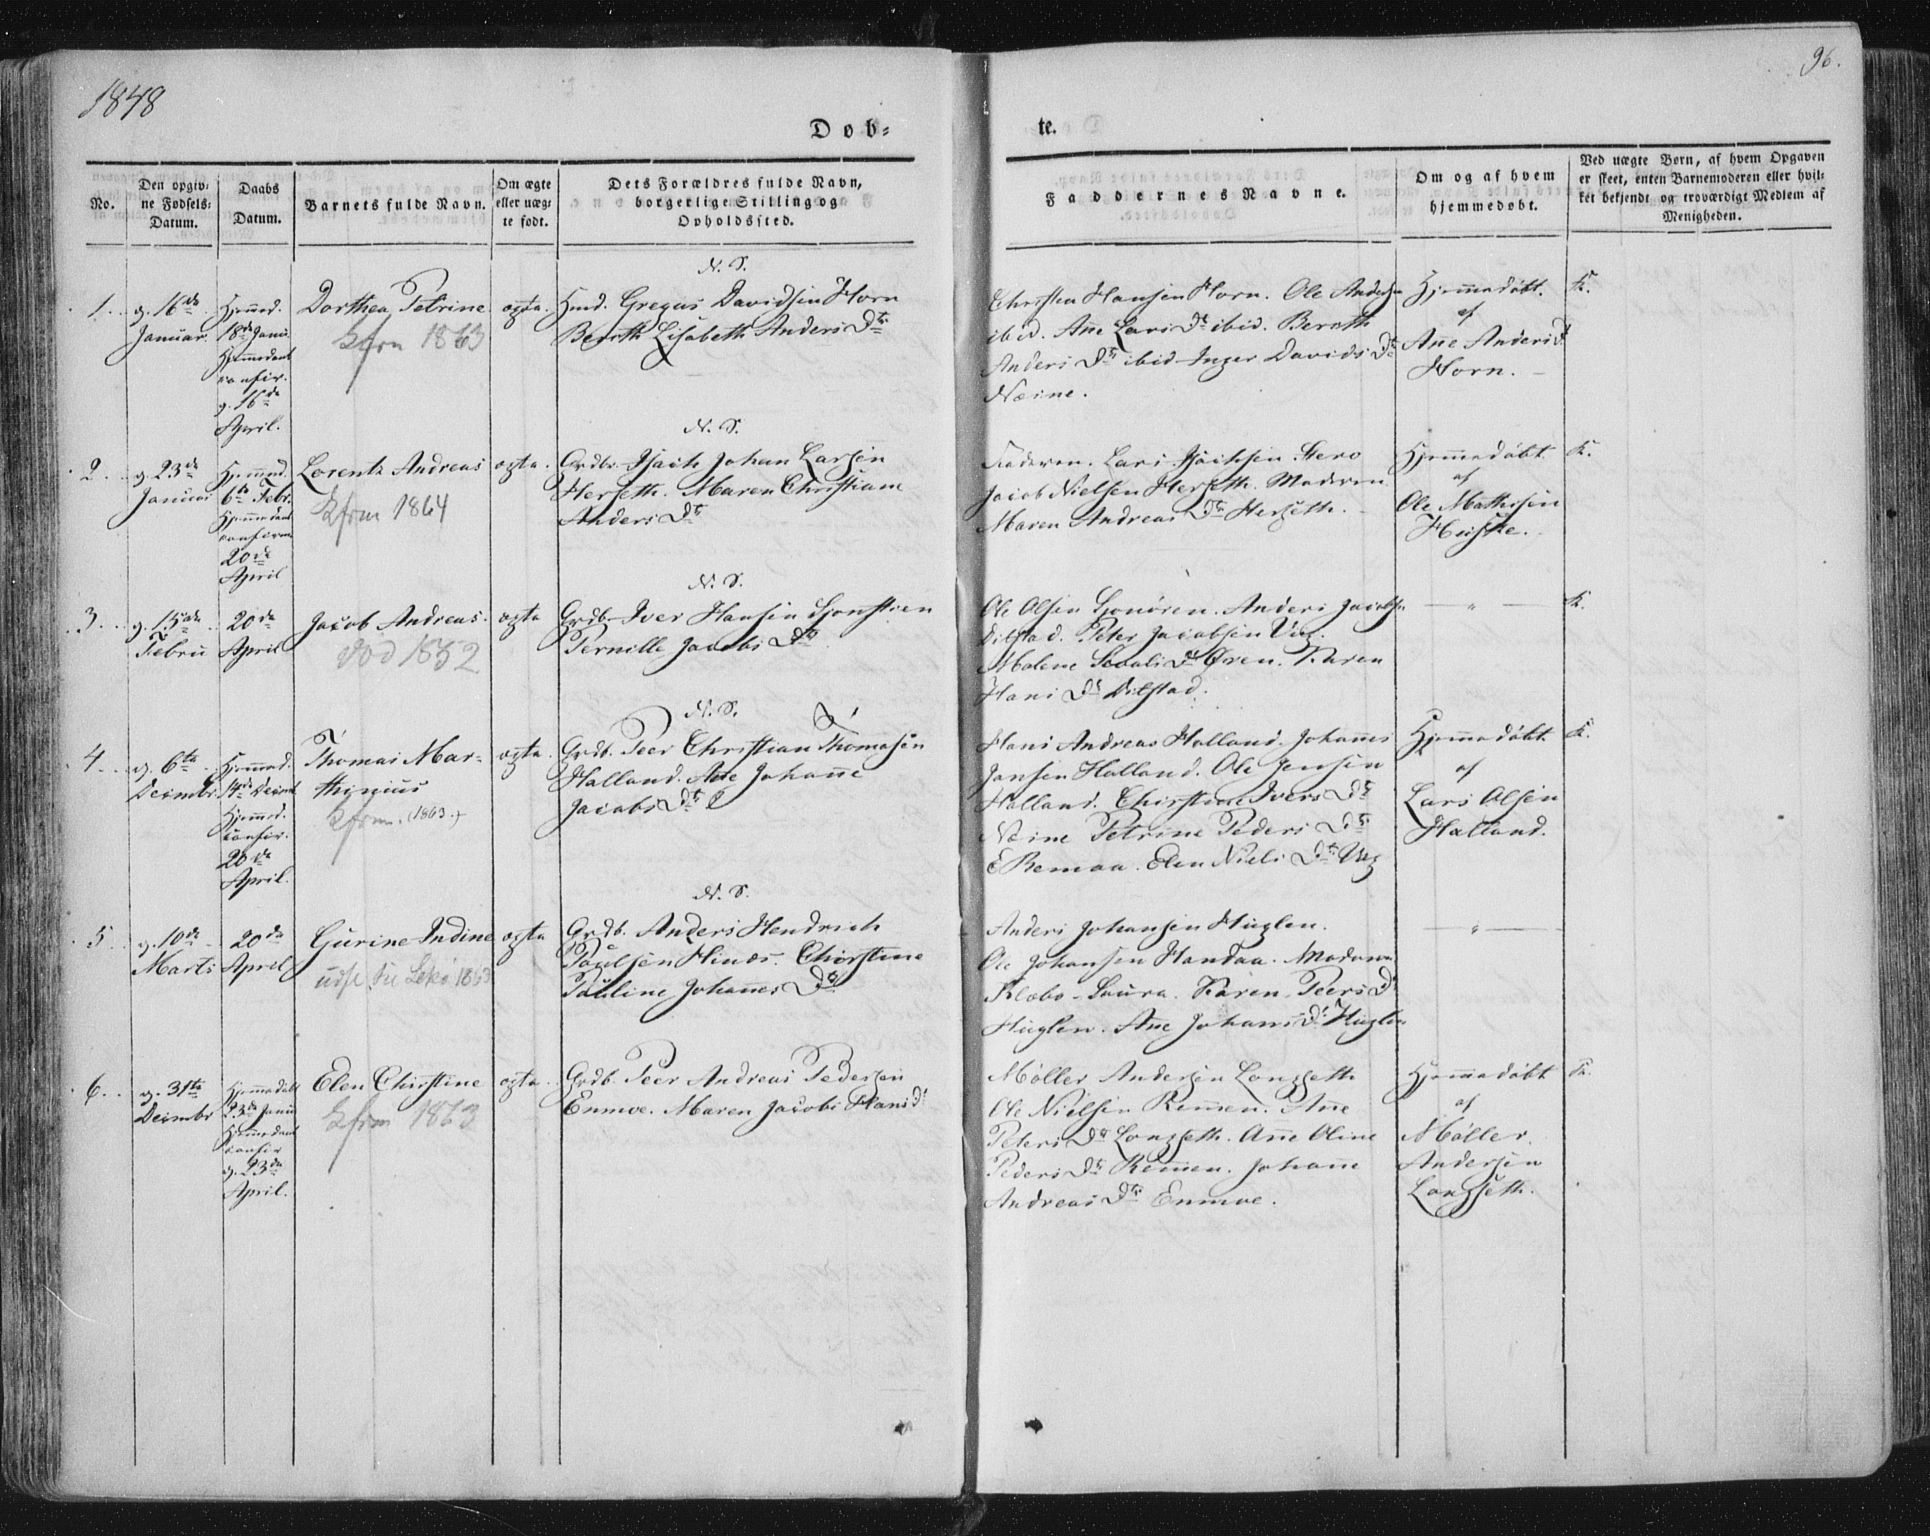 1848
96.
Dob-
te.
No.
Den opgiv-
ne Fødsels-
Datum.
Daabs
Datum.
Barnets fulde Navn.
Om ægte
eller uæg-
te født.
Dets Forældres fulde Navn,
borgerlige Stilling og
Opholdssted.
Faddernes Navne.
Om og af hvem
hjemmedøbt.
Ved uægte Børn, af hvem Opgaven
er skeet, enten Barnemoderen eller hvil-
ket bekjendt og troværdigt Medlem af
Menigheden.
N. S.
1.
g. 16de
Januar.
Hjemmed.
18de Janu.
Hjemmedaab
confir.
g. 16de
April.
Dorthea Petrine
Kfrm 1863
ægte.
Hmd. Gregus Davidsen Horn
Bereth Lisabeth Anders Dtr
Christen Hansen Horn. Ole Andersen
ibid. Ane Lars Dr ibid. Bereth
Anders Dtr ibid. Inger Davids Dtr
Næine.
Hjemmedøbt.
af
Ane Anders Dr
Horn.
K.
N. S.
2.
g. 23de
Januar
Hjemmed.
6te Febr.
Hjemmedaab
confirm
20de
April
Lorentz Andreas
Kfrm 1864
ægte.
Grdb. Isach Johan Larsen
Herseth. Maren Christiane
Anders Dtr
Faderen. Lars Isachsen Hero
Jacob Nielsen Herseth. Moderen
Maren Andreas Dtr Herseth.
Hjemmedøbt
af
Ole Mathisen
Huske.
K.
N. S.
3.
g. 15de
Febru
20de
April
Jacob Andreas.
Død 1852
ægte
Grdb. Iver Hansen
Pernille Jacobs Dtr
Ole Olsen Anders Jacobsen
Dilstad. Peter Jacobsen Vig.
Malene Dr Øren. Karen
Hans Dr Dilstad.
K.
N. S.
4.
g. 6te
Decembr
Hjemmed.
14de Decemb
Hjemmed.
confir.
20de
April.
Thomas Mar-
thinius
Kfrm. (1863.)
ægte.
Grdb. Peer Christian Thomasen
Halland. Ane Johanne
Jacobs Dtr
Hans Andreas Halland. Johannes
Jansen Halland. Ole Jensen
Halland. Christine Ivers Dtr
Næine Petrine Peders Dtr
E Remaa. Elen Niels Dtr Vig
Hjemmedøbt
af
Lars Olsen
Halland.
K.
N. S.
5.
g. 10de
Marts
20de
April
Gurine Indine
1863
ægte
Grdb. Anders Hendrich
Paulsen Hinds. Christine
Pauline Johannes Dtr
Anders Johansen Huglen.
Ole Johansen Handaa. Madame
Klæbo. Laura. Karen Peers Dr
Huglen. Ane Johans Dr Huglen
6.
g. 31te
Decembr
Hjemmedøbt
23de Janu
Hjemmedaab
confir
g. 23de
April.
Elen Christine
Kfrm 1863
ægte.
Grdb. Peer Andreas Pedersen
Enmoe. Maren Jacobe Hans Dr
Møller Andersen Longseth
Ole Nielsen Remen. Ane
Peters Dr Longseth. Ane Oline
Peders Dtr Remen. Johanne
Andreas Dtr Enmoe.
Hjemmedøbt
af
Møller
Andersen
Longseth.
K.